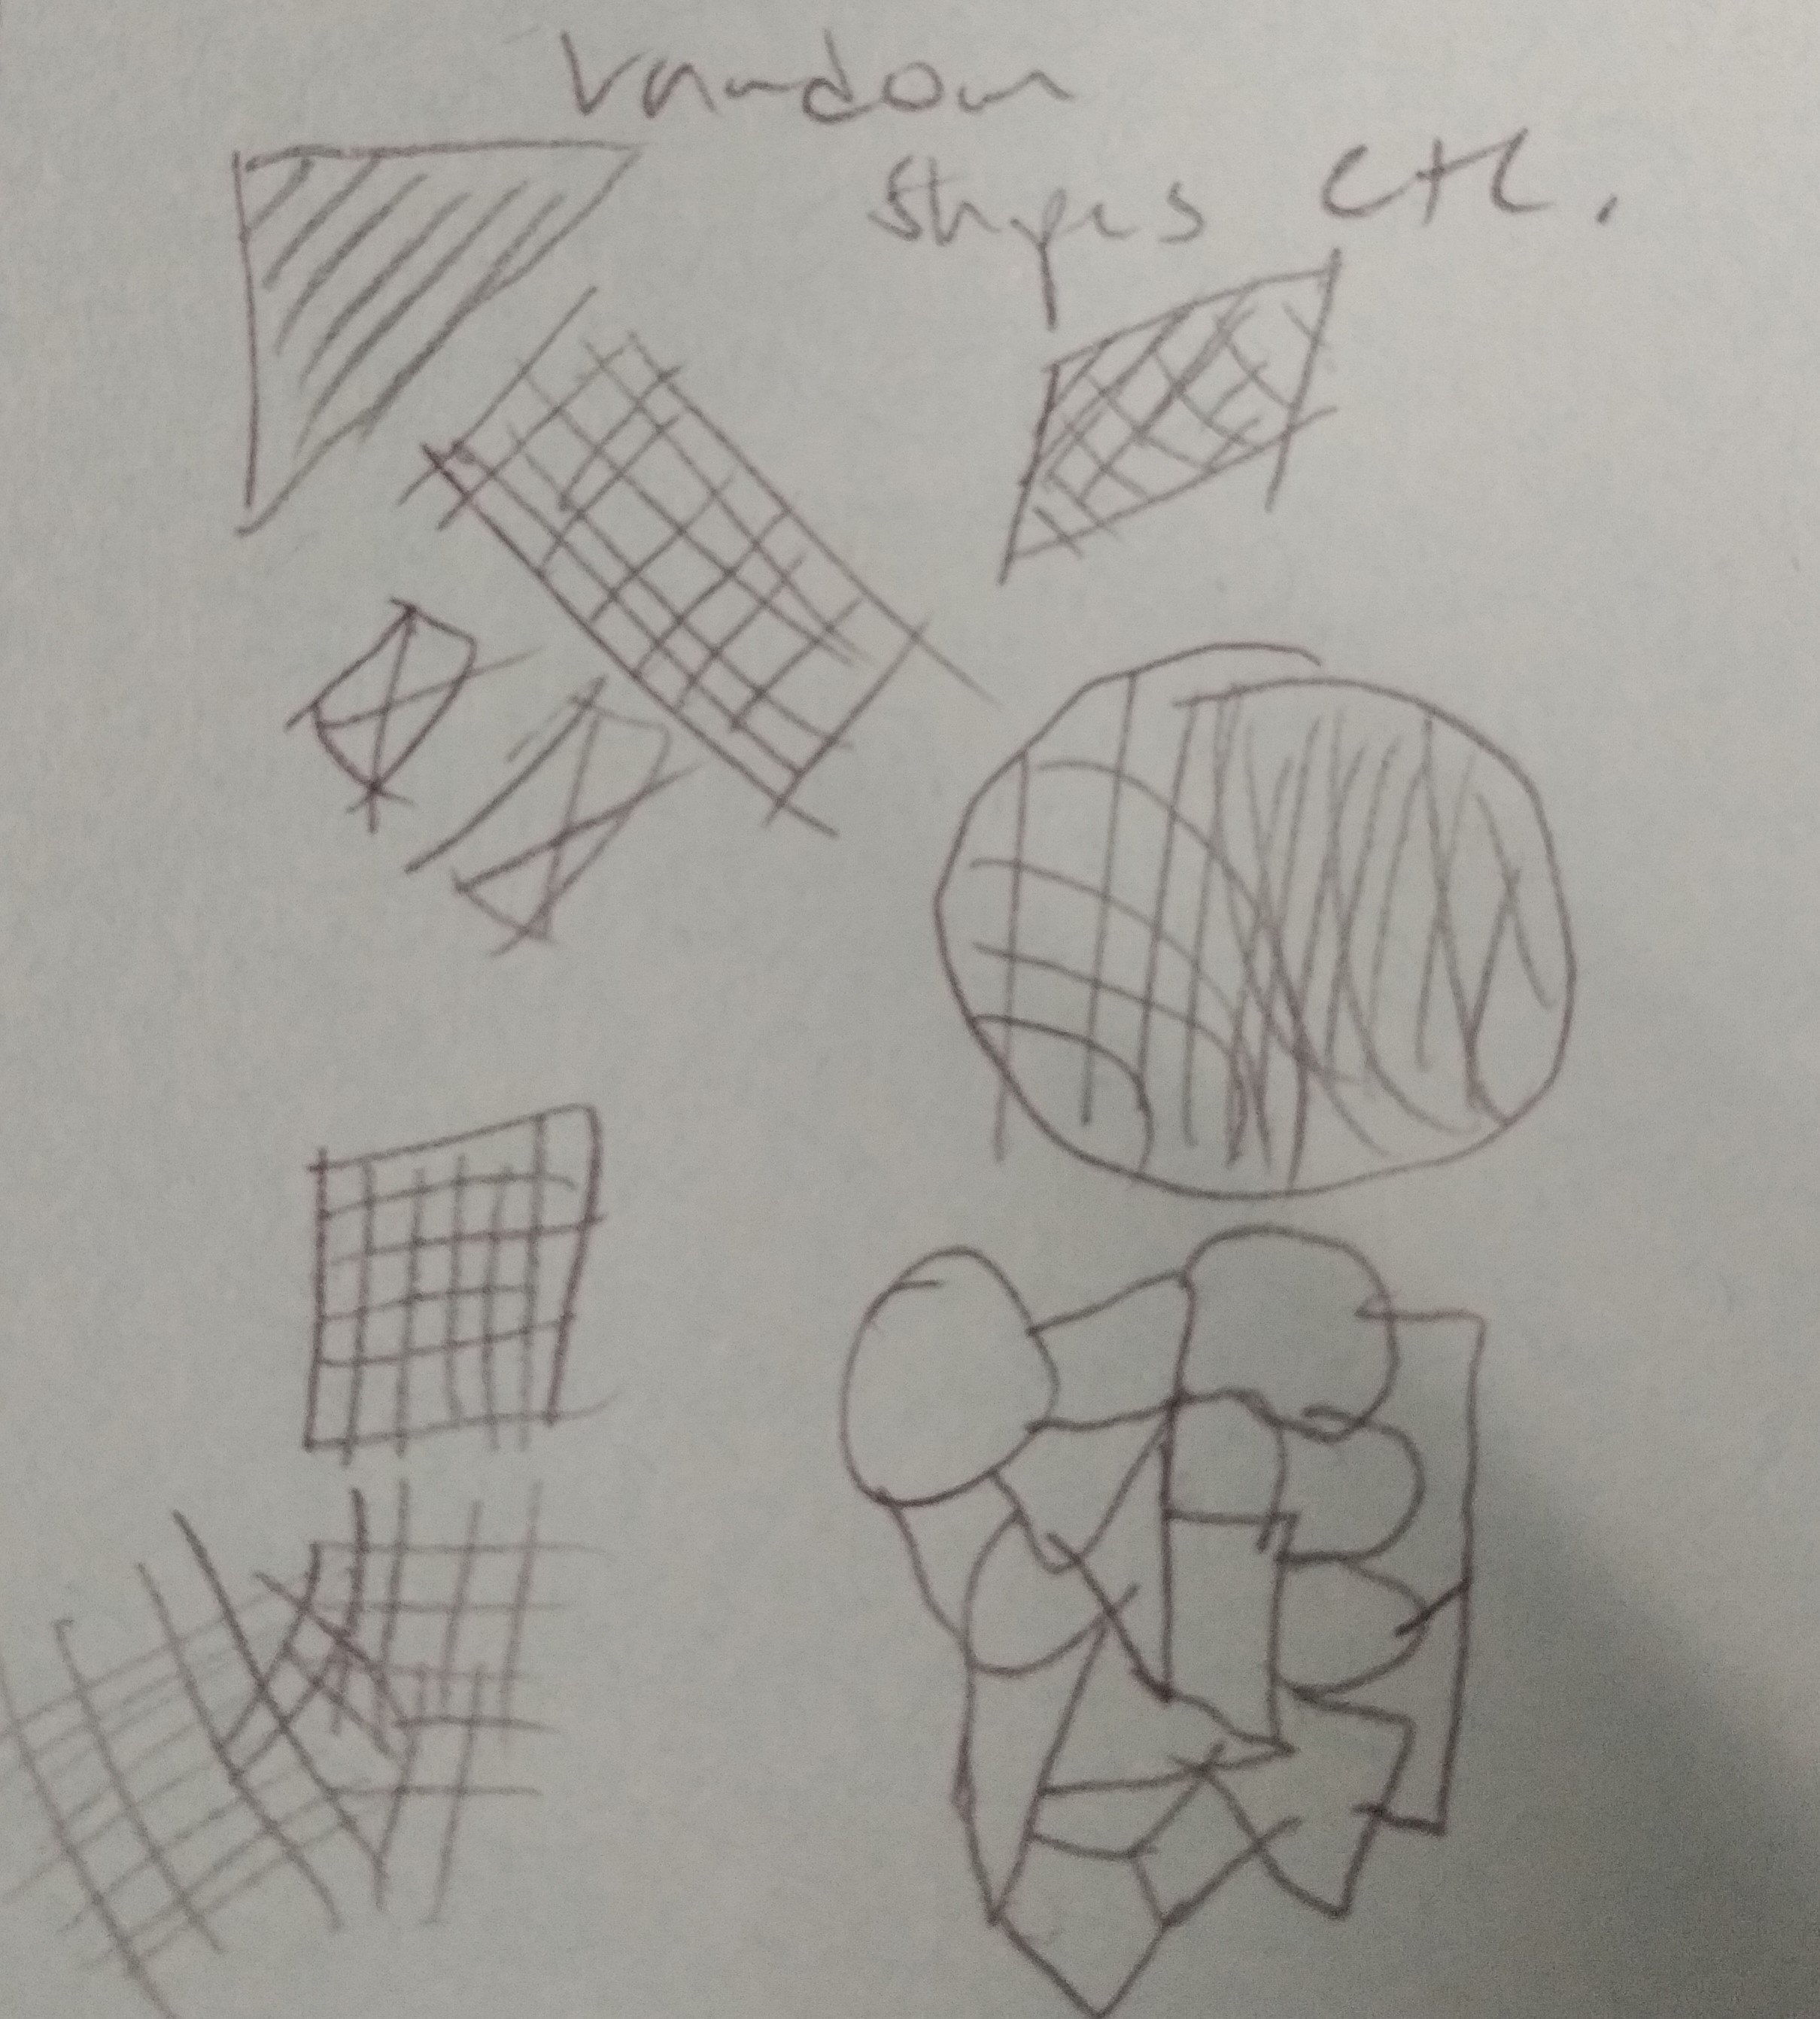 random
shapes etc.